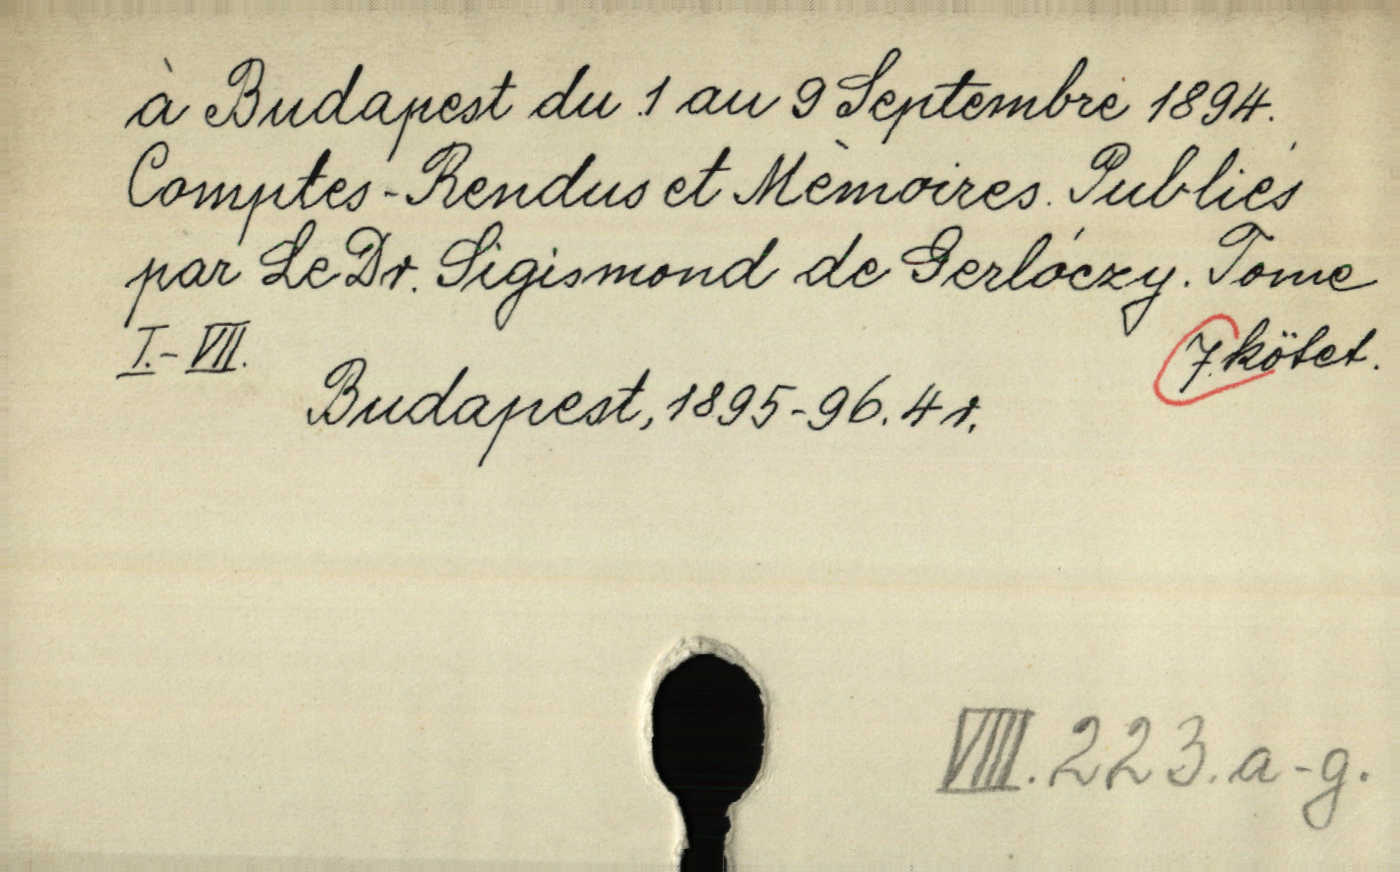 à Budapest du 1 au 9 Septembre 1894.
Comptes-Rendus et Mémoires. Publiés
par Le Dr. Sigismond de Gerlóczy. Tome
I.-VII.
7. kötet.
Budapest, 1895-96. 4 r.
VIII. 223. a-g.